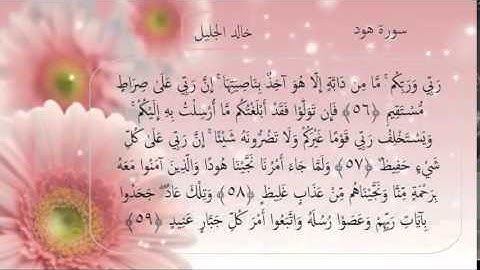 سورة هود
خالد الجليل
رَبِّي وَرَبِّكُم ۚ مَّا مِن دَابَّةٍ إِلَّا هُوَ آخِذٌ بِنَاصِيَتِهَا ۚ إِنَّ رَبِّي عَلَىٰ صِرَاطٍ
مُّسْتَقِيمٍ ﴿٥٦﴾ فَإِن تَوَلَّوْا فَقَدْ أَبْلَغْتُكُم مَّا أُرْسِلْتُ بِهِ إِلَيْكُمْ ۚ
وَيَسْتَخْلِفُ رَبِّي قَوْمًا غَيْرَكُمْ وَلَا تَضُرُّونَهُ شَيْئًا ۚ إِنَّ رَبِّي عَلَىٰ كُلِّ
شَيْءٍ حَفِيظٌ ﴿٥٧﴾ وَلَمَّا جَاءَ أَمْرُنَا نَجَّيْنَا هُودًا وَالَّذِينَ آمَنُوا مَعَهُ
بِرَحْمَةٍ مِّنَّا وَنَجَّيْنَاهُم مِّنْ عَذَابٍ غَلِيظٍ ﴿٥٨﴾ وَتِلْكَ عَادٌ ۖ جَحَدُوا
بِآيَاتِ رَبِّهِمْ وَعَصَوْا رُسُلَهُ وَاتَّبَعُوا أَمْرَ كُلِّ جَبَّارٍ عَنِيدٍ ﴿٥٩﴾